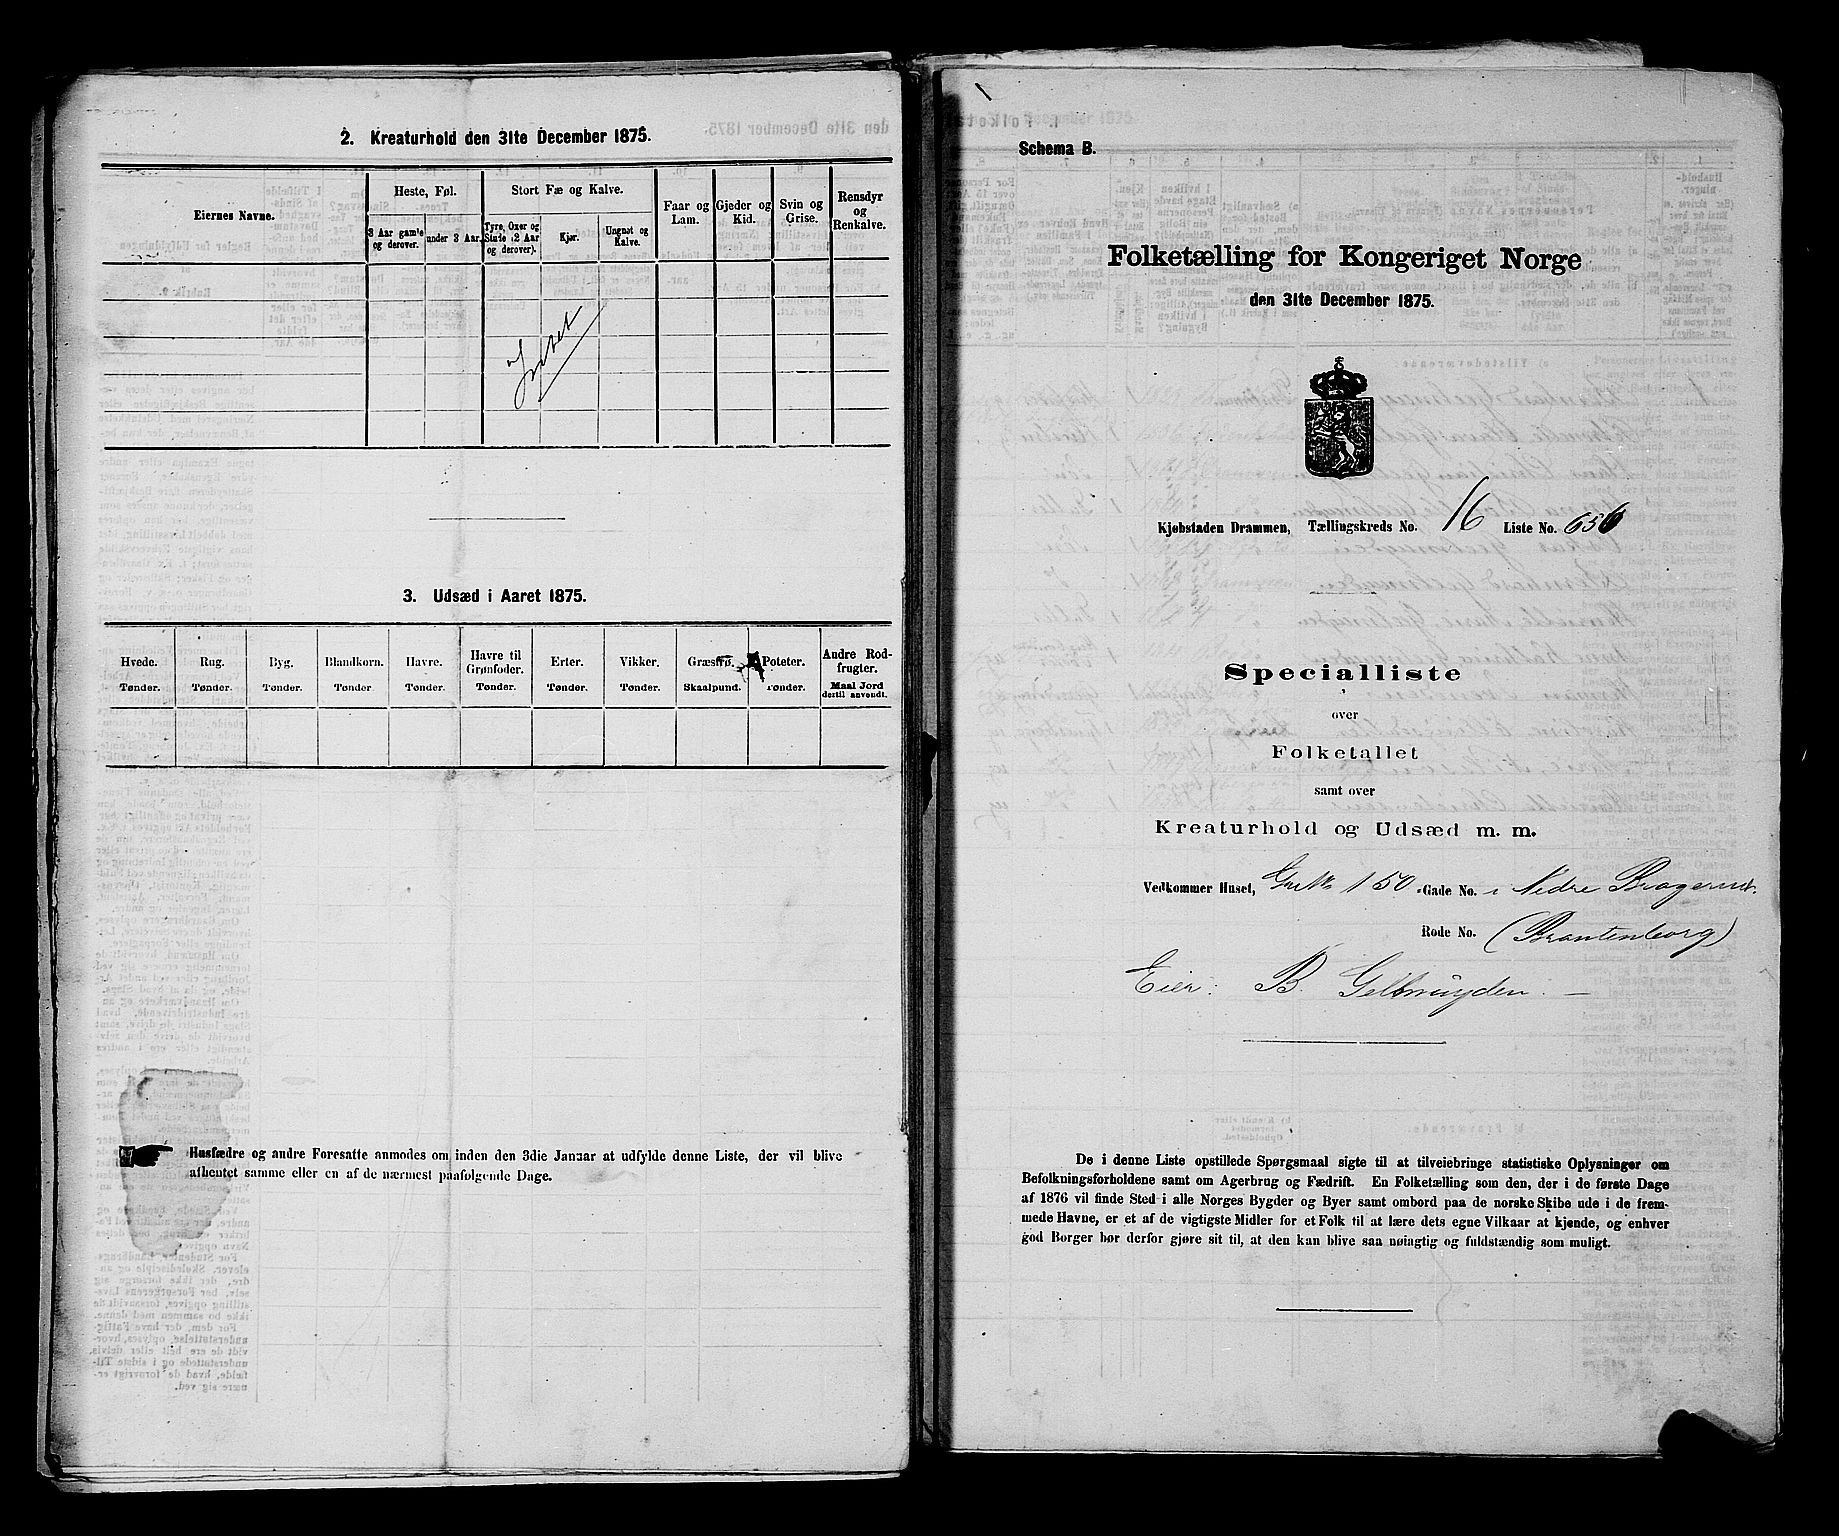 2. Kreaturhold den 31te December 1875.
Eiernes Navne.
Heste, Føl.
Stort Fæ og Kalve.
Faar og Lam.
Gjeder og Kid.
Svin og Grise.
Rensdyr og Renkalve.
3 Aar gamle og derover.
under 3 Aar.
Tyre, Oxer og Stude (2 Aar og derover).
Kjør.
Ungnøt og Kalve.
Intet
3. Udsæd i Aaret 1875.
Hvede. Tønder.
Rug. Tønder.
Byg. Tønder.
Blandkorn. Tønder.
Havre. Tønder.
Havre til Grønfoder. Tønder.
Erter. Tønder.
Vikker. Tønder.
Græsfrø. Skaalpund.
Poteter. Tønder.
Andre Rodfrugter. Maal Jord dertil anvendt.
Husfædre og andre Foresatte anmodes om inden den 3die Januar at udfylde denne Liste, der vil blive
afhentet samme eller en af de nærmest paafølgende Dage.
Schema B.
Folketælling for Kongeriget Norge
den 31te December 1875.
Kjøbstaden Drammen, Tællingskreds No. 16 Liste No. 656
Specialliste
over
Folketallet
samt over
Kreaturhold og Udsæd m. m.
Vedkommer Huset, 150 Gade No. i Nedre Bragernes.
Rode No. (Brantenborg)
Eier: B. Gelmuyden. —
De i denne Liste opstillede Spørgsmaal sigte til at tilveiebringe statistiske Oplysninger om
Befolkningsforholdene samt om Agerbrug og Fædrift. En Folketælling som den, der i de første Dage
af 1876 vil finde Sted i alle Norges Bygder og Byer samt ombord paa de norske Skibe ude i de frem-
mede Havne, er et af de vigtigste Midler for et Folk til at lære dets egne Vilkaar at kjende, og enhver
god Borger bør derfor gjøre sit til, at den kan blive saa nøiagtig og fuldstændig som muligt.